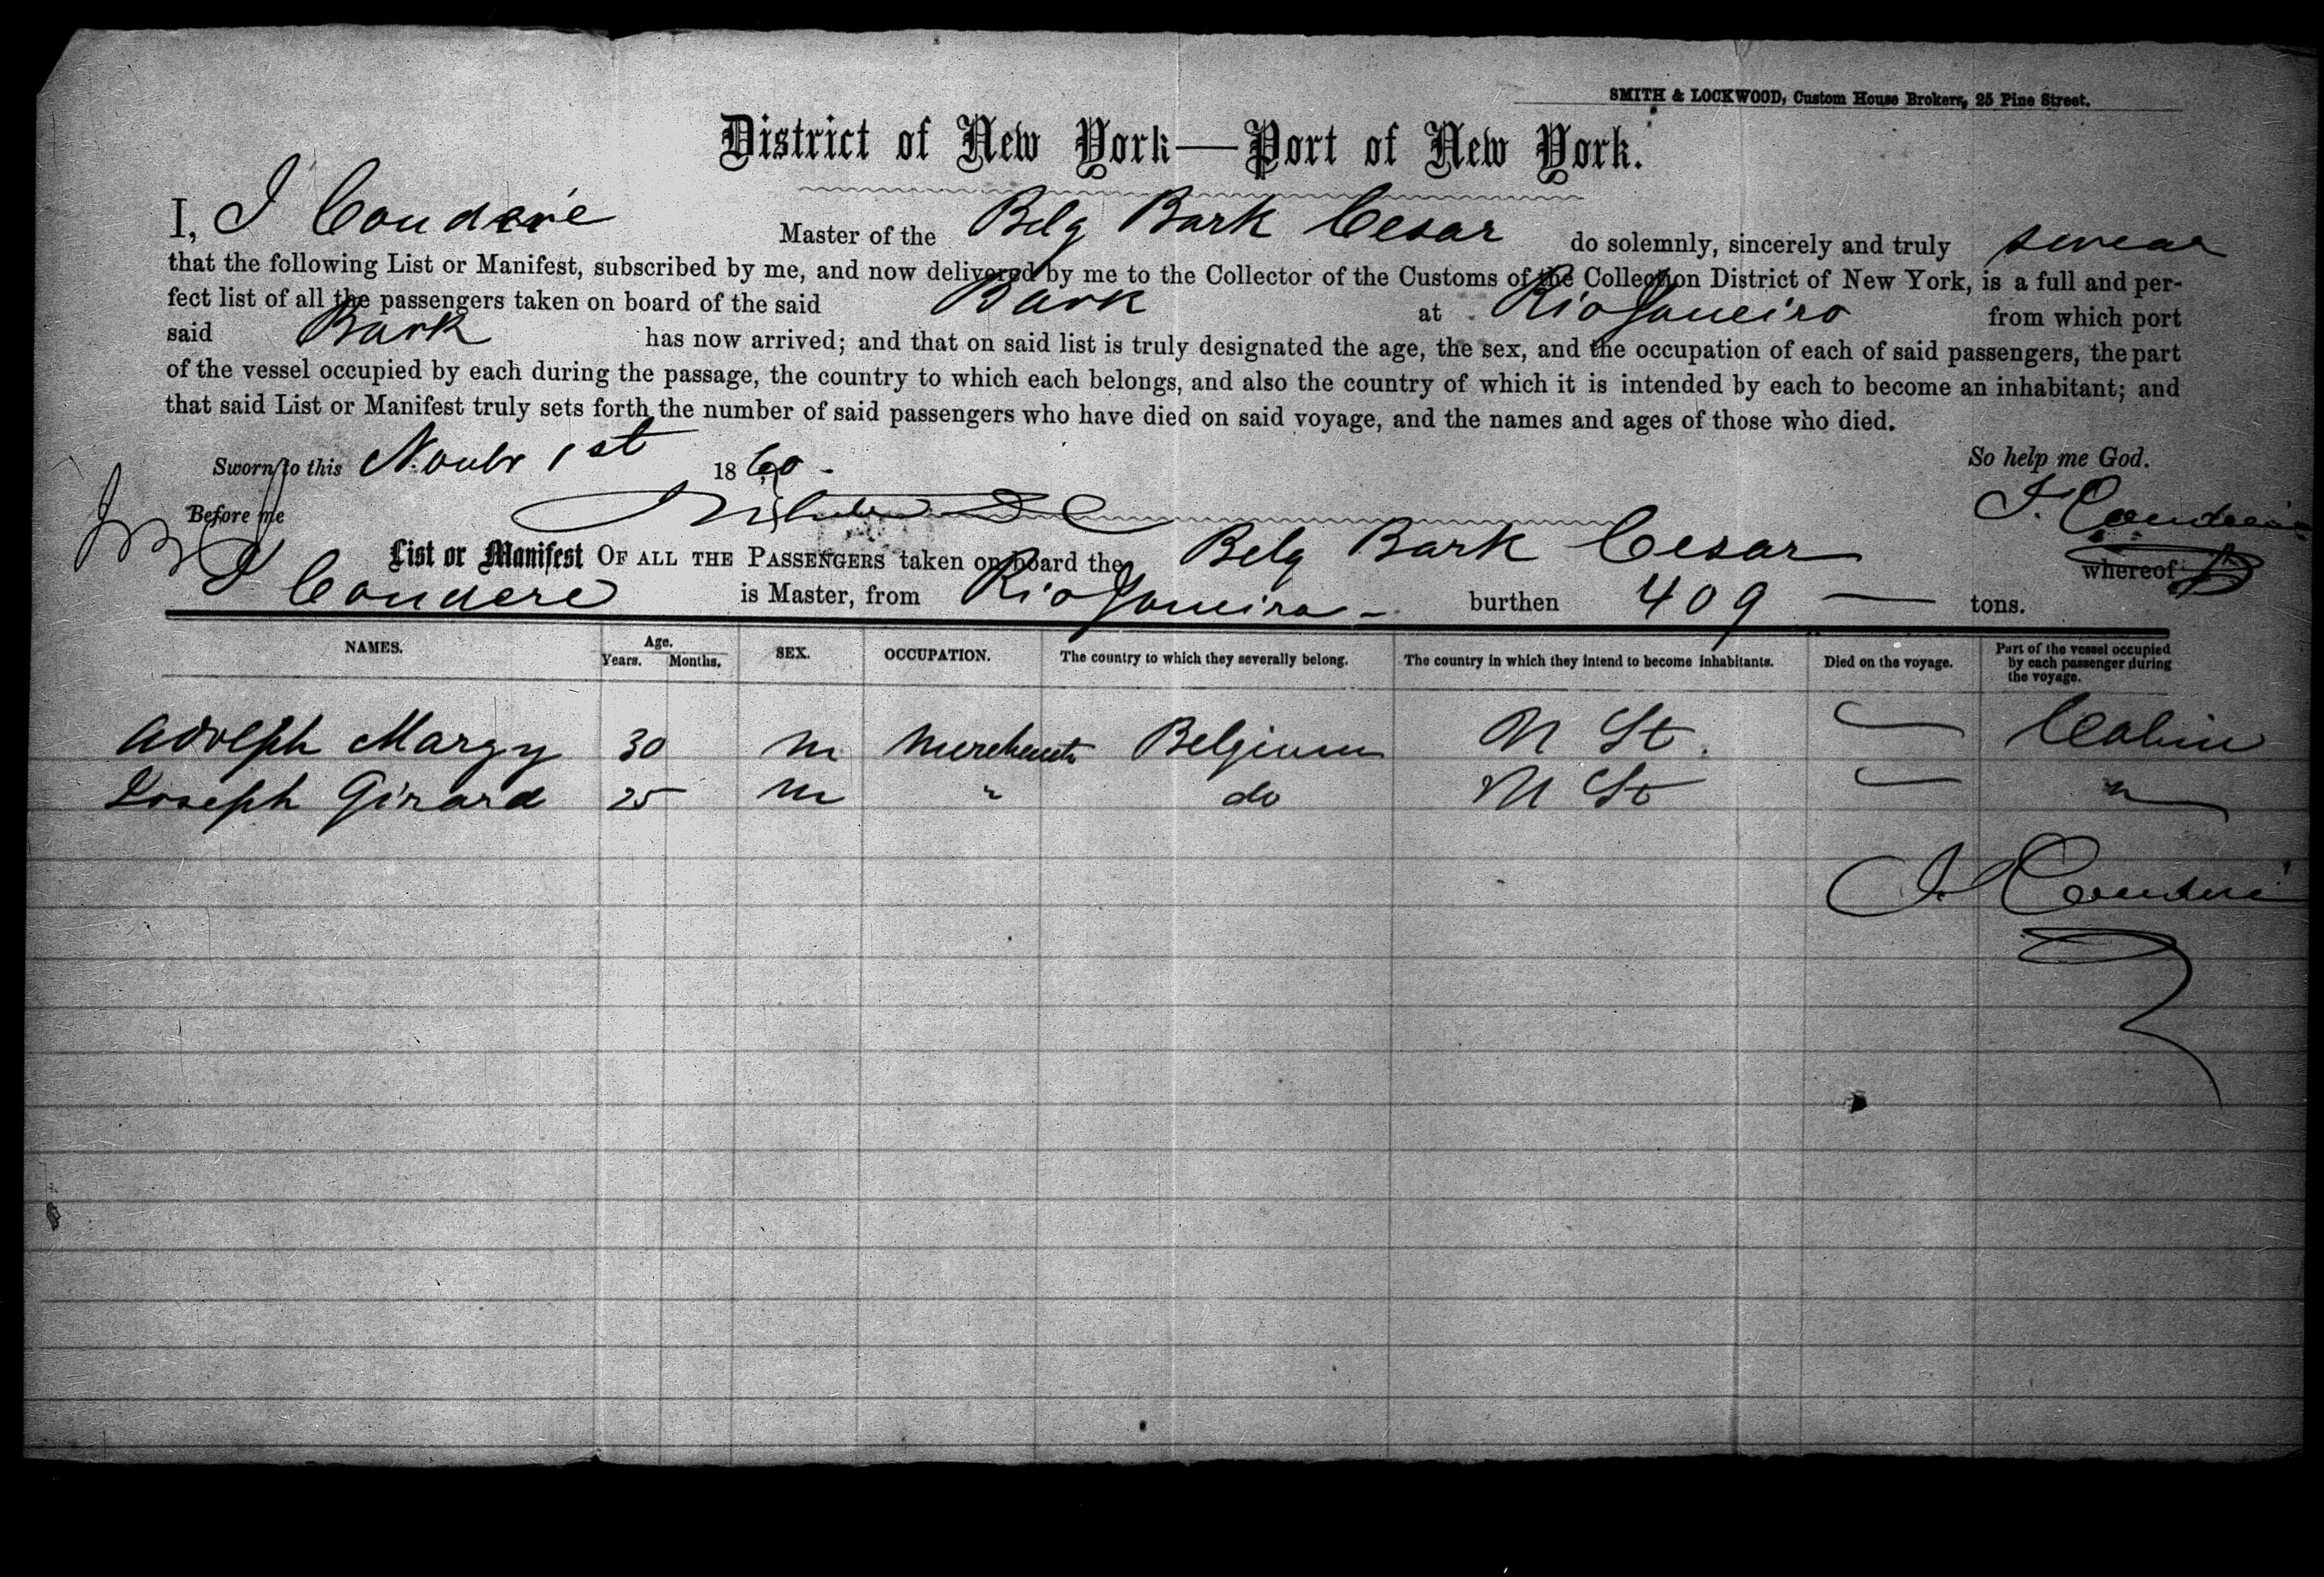 SMITH & LOCKWOOD, Custom House Brokers, 25 Pine Street.
District of New York—Port of New York.
I, J Couderé Master of the Belg Bark Cesar do solemnly, sincerely and truly swear
that the following List or Manifest, subscribed by me, and now delivered by me to the Collector of the Customs of the Collection District of New York, is a full and per-
fect list of all the passengers taken on board of the said Bark at Rio Janeiro from which port
said Bark has now arrived; and that on said list is truly designated the age, the sex, and the occupation of each of said passengers, the part
of the vessel occupied by each during the passage, the country to which each belongs, and also the country of which it is intended by each to become an inhabitant; and
that said List or Manifest truly sets forth the number of said passengers who have died on said voyage, and the names and ages of those who died.
Sworn to this Novbr 1st 1860 - So help me God.
Before me J. Couderé
List or Manifest OF ALL THE PASSENGERS taken on board the Belg Bark Cesar whereof
J Couderé is Master, from Rio Janeiro - burthen 409 — tons.
NAMES. Age. Years. Months. SEX. OCCUPATION. The country to which they severally belong. The country in which they intend to become inhabitants. Died on the voyage. Part of the vessel occupied by each passenger during the voyage.
Adolph Margy 30 m Merchant Belgium U St. — Cabin
Joseph Girard 25 m " do U St — "
J. Couderé